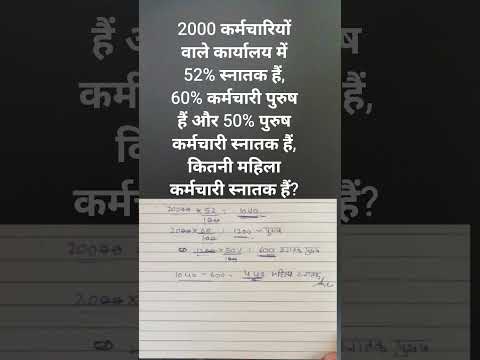 2000 कर्मचारियों
वाले कार्यालय में
52% स्नातक हैं,
60% कर्मचारी पुरुष
हैं और 50% पुरुष
कर्मचारी स्नातक हैं,
कितनी महिला
कर्मचारी स्नातक हैं?
2000 × 52/100 = 1040
2000 × 60/100 = 1200 - पुरुष
1200 × 50/100 = 600 स्नातक पुरुष
1040 - 600 = 440 महिला स्नातक